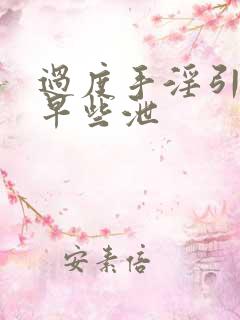 過度手淫引
早些泄
安素倍